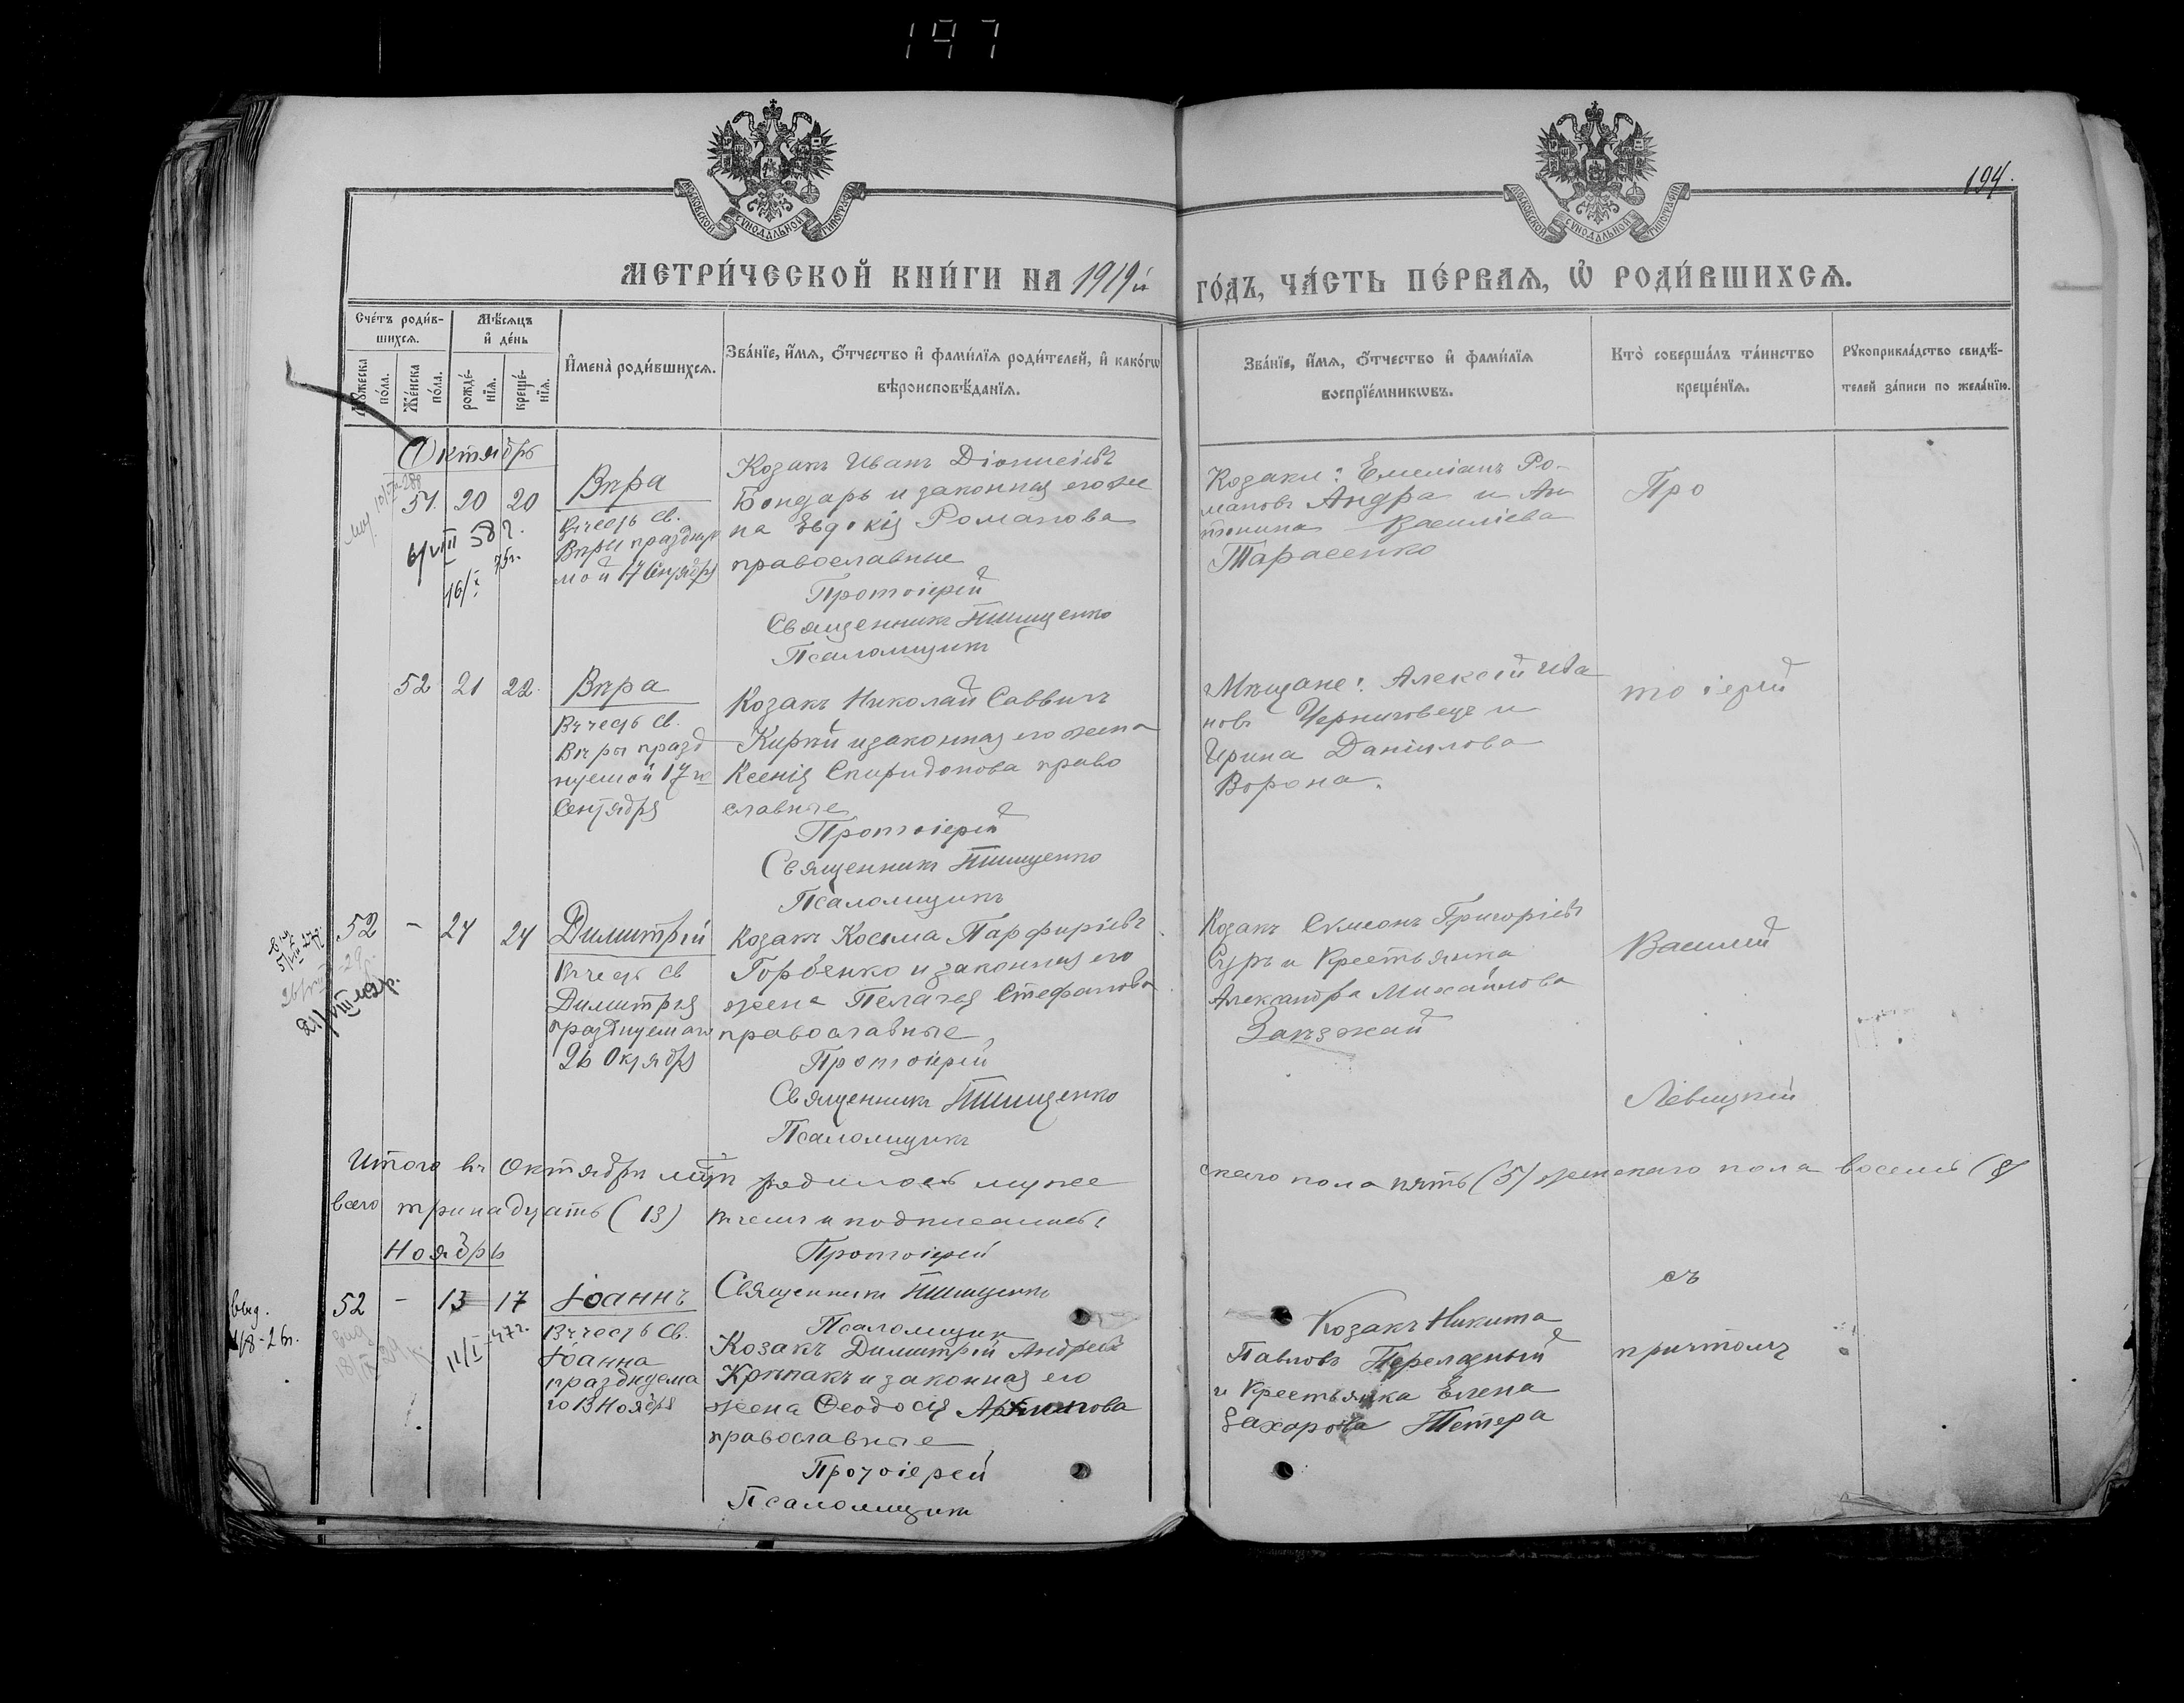 197
МОСКОВСКОЙ СУНОДАЛЬНОЙ ТИПОГРАФІИ
МОСКОВСКОЙ СУНОДАЛЬНОЙ ТИПОГРАФІИ
194.
МЕТРИ́ЧЕСКОЙ КНИ́ГИ НА 1919 й
ГО́ДЪ, ЧА́СТЬ ПЕ́РВАѦ, Ѡ҆ РОДИ́ВШИХСѦ.
Сче́тъ роди́в-
шихсѧ.
Мѣ́сѧцъ
и҆ де́нь
Мꙋ́жеска
по́ла.
Же́нска
по́ла.
рожде́-
нїѧ.
креще́-
нїѧ.
И҆мена̀ роди́вшихсѧ.
Зва́нїе, и҆́мѧ, ѻ҆́тчество и҆ фами́лїѧ роди́телей, и҆ како́гѡ
вѣроисповѣ́данїѧ.
Зва́нїе, и҆́мѧ, ѻ҆́тчество и҆ фами́лїѧ
воспрїе́мникѡвъ.
Кто̀ соверша́лъ та́инство
креще́нїѧ.
Рꙋкоприкла́дство свидѣ́-
телей за́писи по жела́нїю.
Октябрь
51. 20 20
Вѣра
Въ честь св.
Вѣры празднуе
мой 17 Сентября
6/VIII 58 г.
16/I 75г.
Козакъ Иванъ Діонисіевъ
Бондарь и законная его же
на Евдокія Романова
православные
Протоіерей
Священникъ Пишценко
Псаломщикъ
Козаки: Емеліанъ Ро-
мановъ Андра и Ан
тонина Василіева
Тарасенко
Про
52 21 22.
Вѣра
Въ честь св.
Вѣры празд
нуемой 17 го
Сентября
Козакъ Николай Саввичъ
Кирѣй и законная его жена
Ксенія Спиридонова право
славные
Протоіерей
Священникъ Пишценко
Псаломщикъ
Мѣщане: Алексій Ива
новъ Черниговецъ и
Ирина Даніилова
Ворона.
тоіерей
52 – 24 24
Димитрій
Въ честь св
Димитрія
празднуемаго
26 Октября
Козакъ Косьма Парфиріевъ
Горбенко и законная его
жена Пелагея Стефанова
православные
Протоіерей
Священникъ Пишценко
Псаломщикъ
Козакъ Симонъ Григоріевъ
Сыръ и Крестьянка
Александра Михайлова
Заѣзжай
Василій
Левицкій
Итого въ Октябрѣ мцѣ родилось муже
скаго пола пять (5) женскаго пола восемь (8)
всего тринадцать (13) въ чемъ и подписались
Ноябрь
Протоіерей
Священникъ Пишценко
Псаломщикъ
выд.
52 – 13 17
Іоаннъ
Въ честь Св.
Іоанна
празднуема
го 13 Ноября
11/I-47г.
Козакъ Димитрій Андреевъ
Крѣпакъ и законная его
жена Феодосія
православные
Протоіерей
Псаломщикъ
Козакъ Никита
Павловъ Перелазный
и Крестьянка Елена
Захарова Тетера
съ
причтомъ